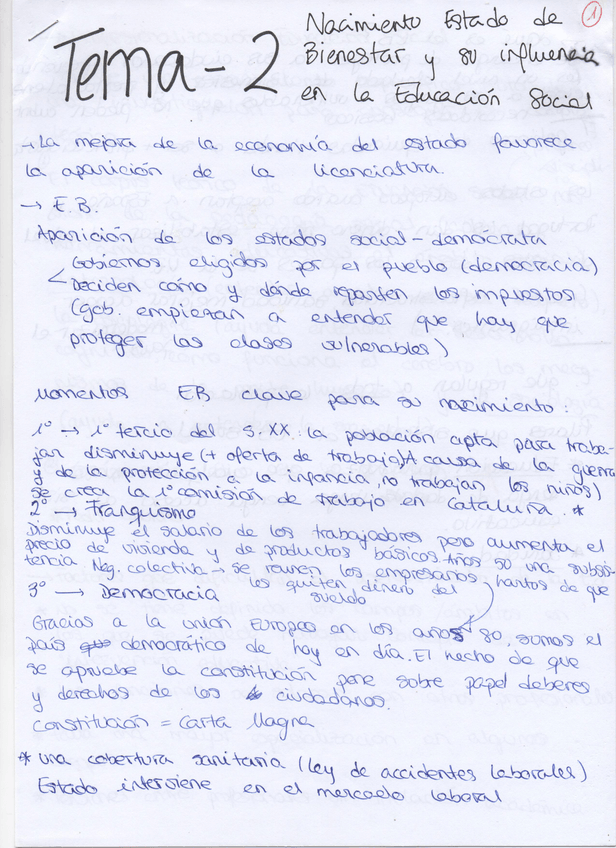 Tema 2
Nacimiento Estado de
Bienestar y su influencia
en la Educación Social
1
→ La mejora de la economía del estado favorece
la aparición de la licenciatura.
→ E.B.
Aparición de los estados social-demócrata
Gobiernos eligidos por el pueblo (democracia)
< Deciden cómo y dónde reparten los impuestos
(gob. empiezan a entender que hay que
proteger las clases vulnerables)
Momentos EB clave para su nacimiento:
1º → 1º tercio del S.XX: la población apta para traba-
jar disminuye (+ oferta de trabajo) (A causa de la guerra
y de la protección a la infancia, no trabajan los niños)
se crea la 1º comisión de trabajo en Cataluña. *
2º → Franquismo
Disminuye el salario de los trabajadores pero aumenta el
precio de vivienda y de productos básicos. Años 50 una subsis-
tencia. Neg. colectiva → se reunen los empresarios, hartos de que
los quiten dinero del
sueldo
3º → Democracia
Gracias a la unión Europeo en los años 80, somos el
país democrático de hoy en día. El hecho de que
se apruebe la constitución pone sobre papel deberes
y derechos de los ciudadanos.
Constitución = Carta Magna
* una cobertura sanitaria (ley de accidentes laborales)
Estado interviene en el mercado laboral